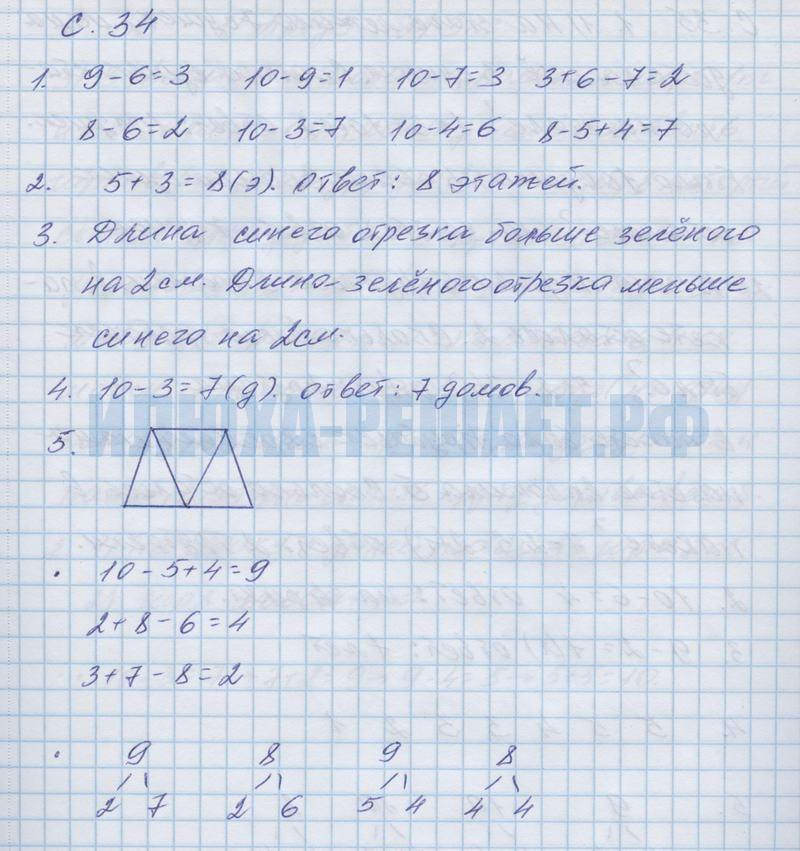 с. 34
1. 9-6=3 10-9=1 10-7=3 3+6-7=2
8-6=2 10-3=7 10-4=6 8-5+4=7
2. 5+3=8(э). ответ: 8 этажей.
3. Длина синего отрезка больше зелёного
на 2см. Длина зелёного отрезка меньше
синего на 2см.
4. 10-3=7(д). ответ: 7 домов.
ИЛЮХА-РЕШАЕТ.РФ
5.
. 10-5+4=9
2+8-6=4
3+7-8=2
. 9 8 9 8
2 7 2 6 5 4 4 4